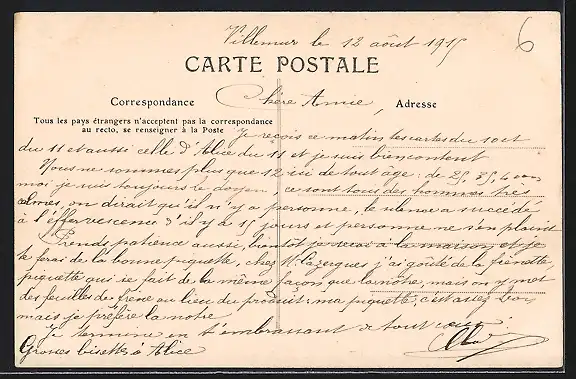 Villemur le 12 août 1915
6
CARTE POSTALE
Correspondance
Chère Amie,
Adresse
Tous les pays étrangers n'acceptent pas la correspondance
au recto, se renseigner à la Poste
Je reçois ce matin tes cartes du 10 et
du 11 et aussi celle d'Alice du 11 et je suis bien content
Nous ne sommes plus que 12 ici de tout age: de 25, 35, 40 ans
moi je suis toujours le doyen, ce sont tous des hommes très
calmes, on dirait qu'il n'y a personne, le silence a succédé
à l'effervescence d'il y a 15 jours et personne ne s'en plaint
Prends patience aussi, bientôt je serai à la maison et je
te ferai de la bonne piquette, chez M. Cazergues j'ai goûté de la frénette,
piquette qui se fait de la même façon que la nôtre, mais on y met
des feuilles de frêne au lieu du produit; ma piquette, c'est assez bon
mais je préfère la notre
Je termine en t'embrassant de tout cœur.
Grosses bisettes à Alice